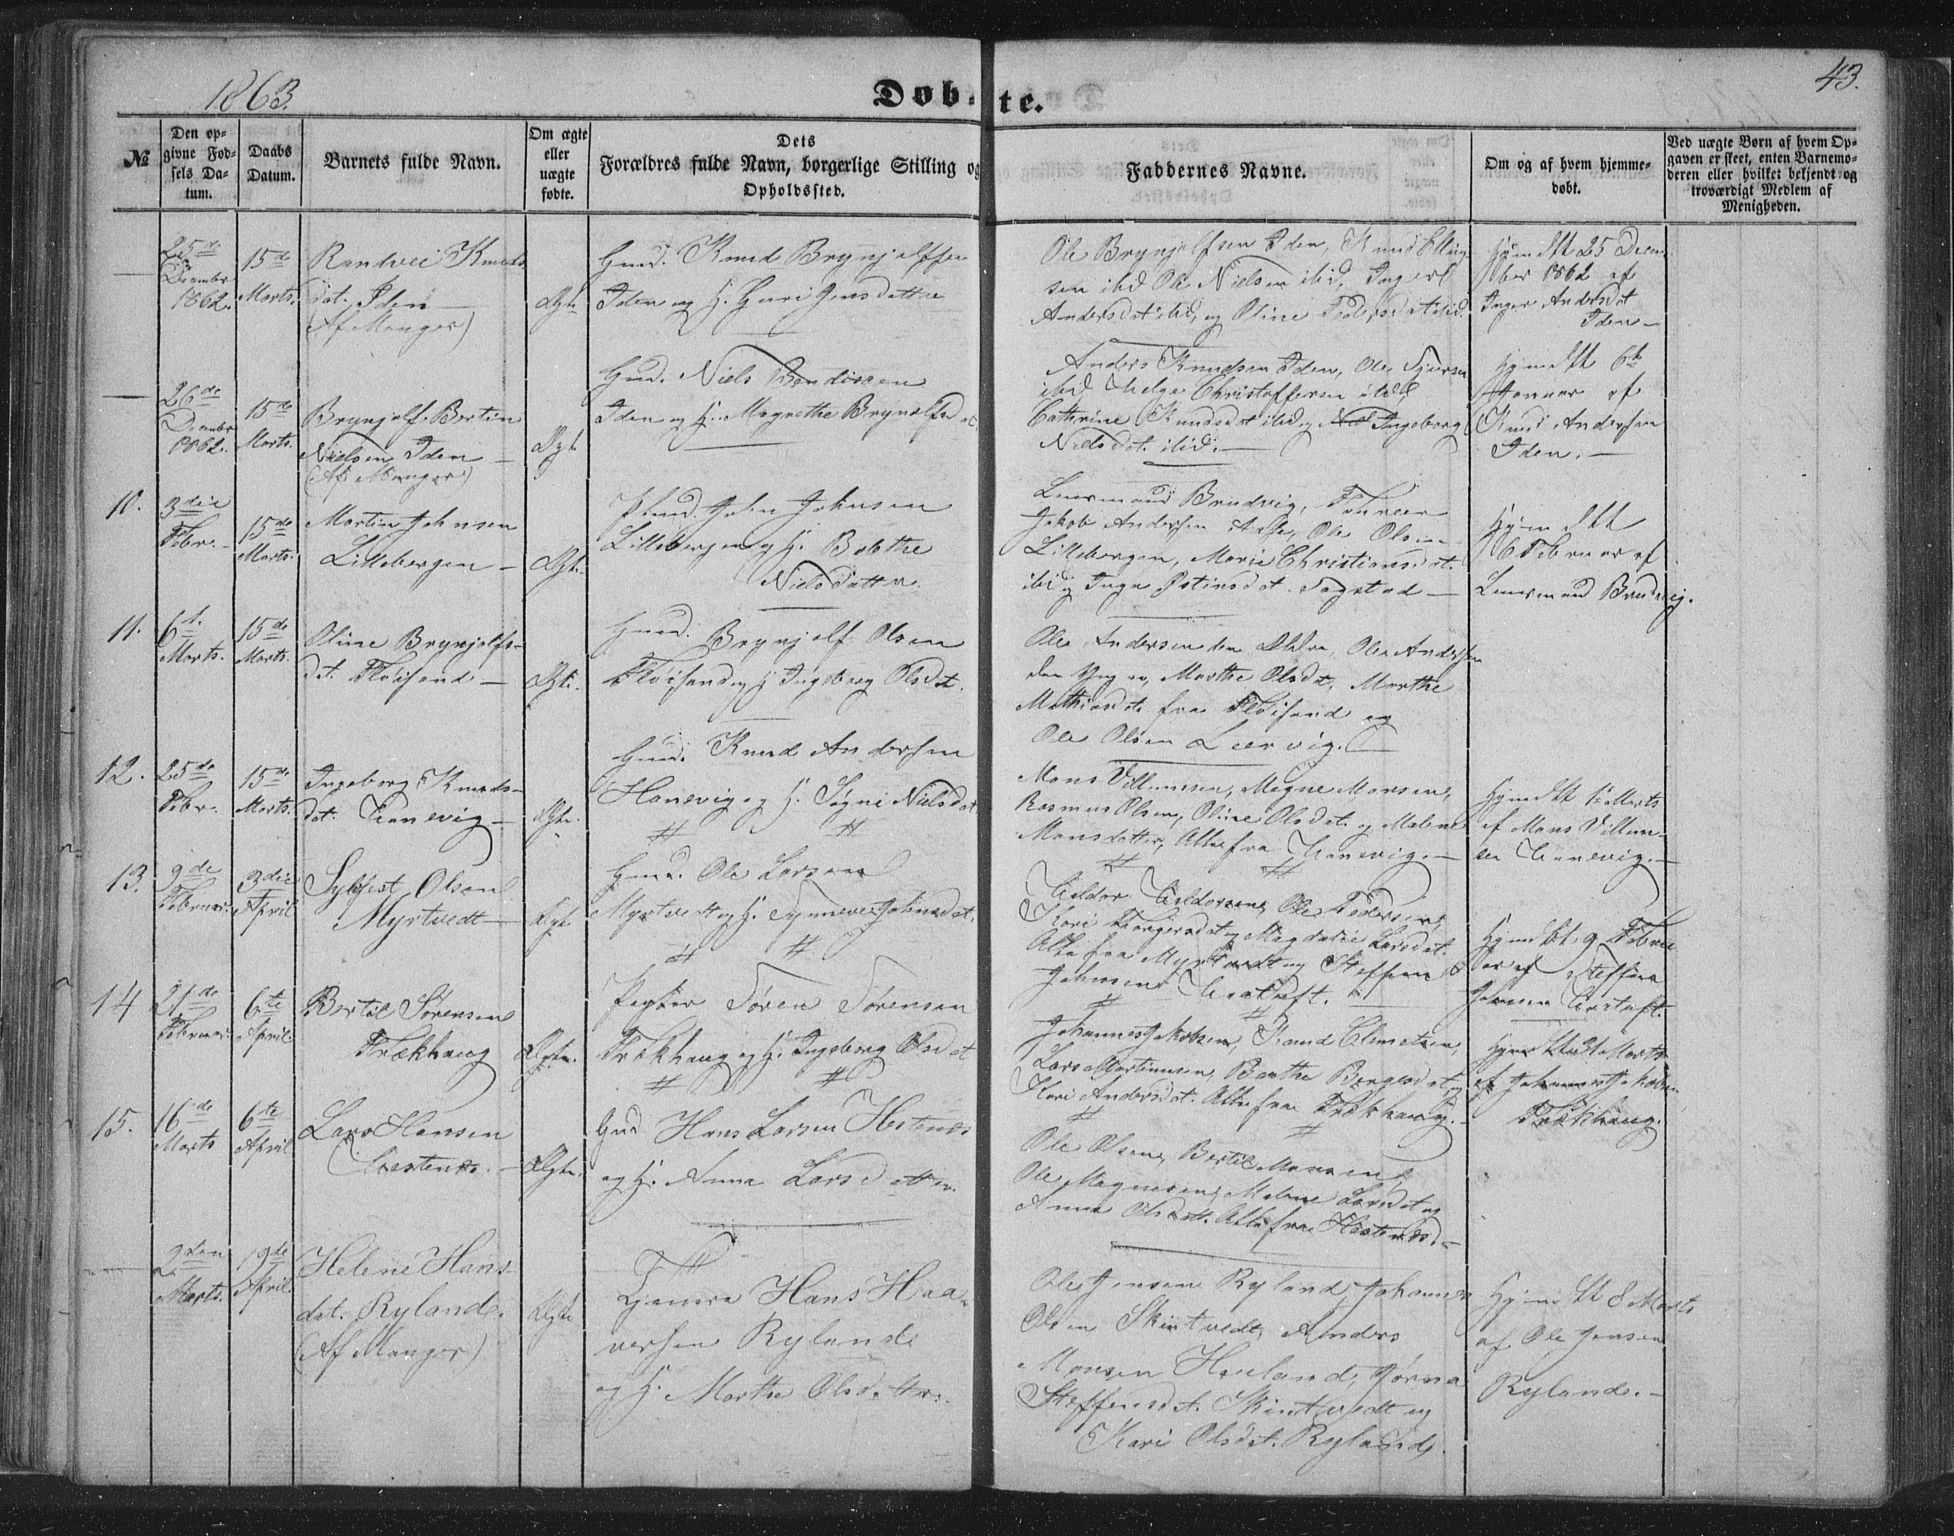 1863.
Døbte.
43.
№
Den op-
givne Fød-
sels Da-
tum.
Daabs
Datum.
Barnets fulde Navn.
Om ægte
eller
uægte
fødte.
Dets
Forældres fulde Navn, borgerlige Stilling og
Opholdssted.
Faddernes Navne.
Om og af hvem hjemme-
døbt.
Ved uægte Børn af hvem Op-
gaven er skeet, enten Barnemo-
deren eller hvilket bekjendt og
troværdigt Medlem af
Menigheden.
25de
Decembr
1862.
15de
Marts.
Randvei Knuds
dat. Iden
(Af Manger)
Ægte
Gmd. Knud Brynjolfsen
Iden og H. Guri Jensdatter
Ole Brynjolfsen Iden, Knud Elling-
sen ibid Ole Nielsen ibid, Inger
Andersdat ibid, og Oline Pedersdat ibid.
Hjemdbt 25 Decem
ber 1862 af
Inger Andersdat
Iden
26de
Decembr
1862.
15de
Marts.
Brynjolf Bertin
Nielsen Iden
(Af Manger)
Ægt.
Gmd. Niels
Iden og H. Magrethe Brynjolfsdat
Anders Knudsen Iden, Ole
ibid Helge Christoffersen ibid
Cathrine Knudsdat ibid og Ingeborg
Nielsdat. ibid.
Hjemdbt 6te
Januar af
Knud Andersen
Iden.
10.
3die
Febr.
15de
Marts.
Martin Johnsen
Lillebergen
Ægte.
John Johnsen
Lillebergen og H. Bolethe
Nielsdatter.
Lensmand Brudvig,
Jakob Andersen Ole Olsen
Lillebergen, Marie Christiansdat.
ibid og Inga Østensdat. Sagstad
Hjemdbt
6 Februar af
Lensmand Brudvig.
11.
6te
Marts.
15de
Marts.
Oline Brynjolfs-
dat. Floisand
Ægte.
Gmd. Brynjolf Olsen
Floisand og H. Ingeborg Olsdat.
Ole Andersen den Ældre, Ole Andersen
den Yngre, Marthe Olsdat, Marthe
Mathiasdat. fra Floisand og
Ole Olsen Leervig.
12.
25de
Febr.
15de
Marts.
Ingeborg Knuds-
dat. Hanevig
Ægte.
Gmd. Knud Andersen
Hanevig og H. Søgni Nielsdat
Mons Villumsen, Magne Monsen,
Rasmus Olsen, Oline Olsdat. og Malene
Monsdatter, Alle fra Hanevig.
Hjemdbt 1 Marts
af Mons Villum-
sen Hanevig.
13.
9de
Februar.
3die
April
Sylfest Olsen
Myrtvedt
Ægt.
Gmd. Ole Larsen
Myrtvedt og H. Synneve Johnsdat.
Haldor Haldorsen, Ole Pedersen,
Kari Torgersdat og Magdalie Larsdat.
Alle fra Myrtvedt og Steffen
Johnsen Hertuft.
Hjemdbt. 9 Febru
ar af Steffen
Johnsen Hertuft.
14
21de
Februar.
6te
April
Bertil Sørensen
Frækhaug
Ægte.
Søren Sørensen
Frækhaug og H. Ingeborg Olsdat
Johannes Jakobsen, Knud Clemetsen,
Lars Martinusen, Berthe Børgesdat. og
Kari Andersdat. Alle fra Frækhaug.
Marts
af Johannes Jakobsen
Frækhaug.
15.
16de
Marts
6te
April
Lars Hansen
Hestenes.
Ægte.
Gmd Hans Larsen Hestenes
og H. Anna Larsdatter.
Ole Olsen, Bertil Monsen,
Ole Magnesen, Malene Larsdat og
Anna Olsdat. Alle fra Hestenes.
2den
Marts.
19de
April
Helene Hans-
dat. Rylande.
(Af Manger)
Ægte
Tjenere Hans Haa-
versen Rylande
og H. Marthe Olsdatter.
Ole Jensen Ryland, Johannes
Olsen Skintvedt, Anders
Monsen Heuland, Jørna
Steffensdat. Skintvedt og
Kari Olsdat. Rylande.
Hjemdbt 8 Marts
af Ole Jensen
Rylande.